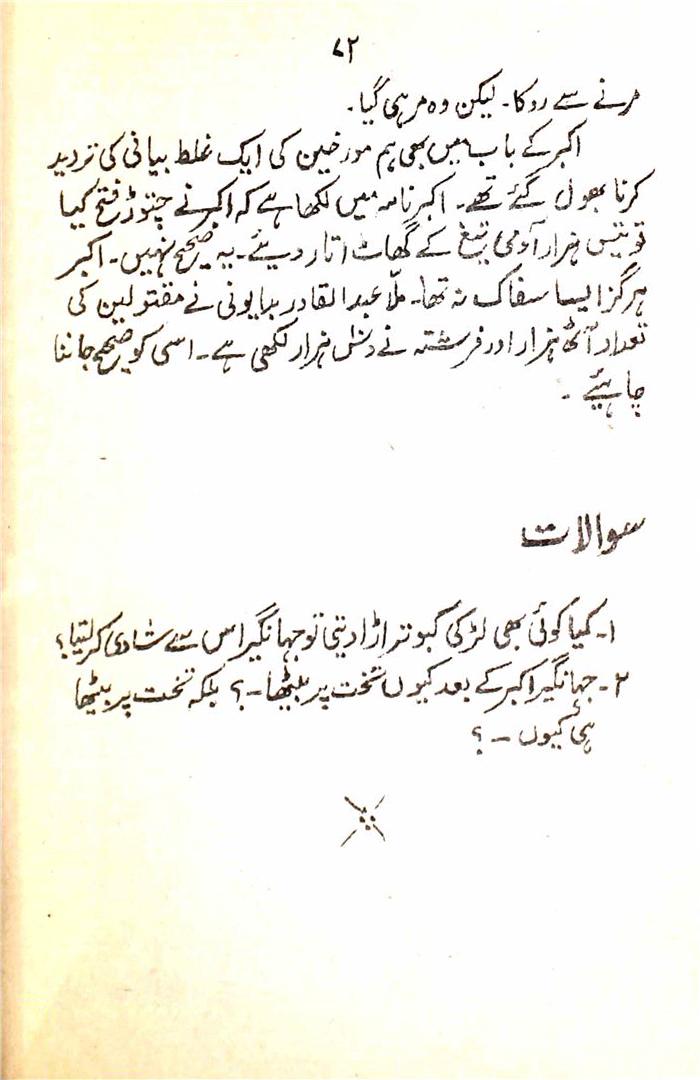 ۷۲
مرنے سے روکا۔ لیکن وہ مر ہی گیا۔
اکبر کے باب میں بھی ہم مورخین کی ایک غلط بیانی کی تردید
کرنا بھول گئے تھے۔ اکبر نامہ میں لکھا ہے کہ اکبر نے چتوڑ فتح کیا
تو تیس ہزار آدمی تیغ کے گھاٹ اتار دیئے۔ یہ صحیح نہیں۔ اکبر
ہرگز ایسا سفاک نہ تھا۔ ملّا عبدالقادر بدایونی نے مقتولین کی
تعداد آٹھ ہزار اور فرشتہ نے دس ہزار لکھی ہے۔ اسی کو صحیح جاننا
چاہئیے ۔
سوالات
۱۔ کیا کوئی بھی لڑکی کبوتر اڑا دیتی تو جہانگیر اس سے شادی کر لیتا؟
۲۔ جہانگیر اکبر کے بعد کیوں تخت پر بیٹھا۔؟ بلکہ تخت پر بیٹھا
ہی کیوں ۔ ؟